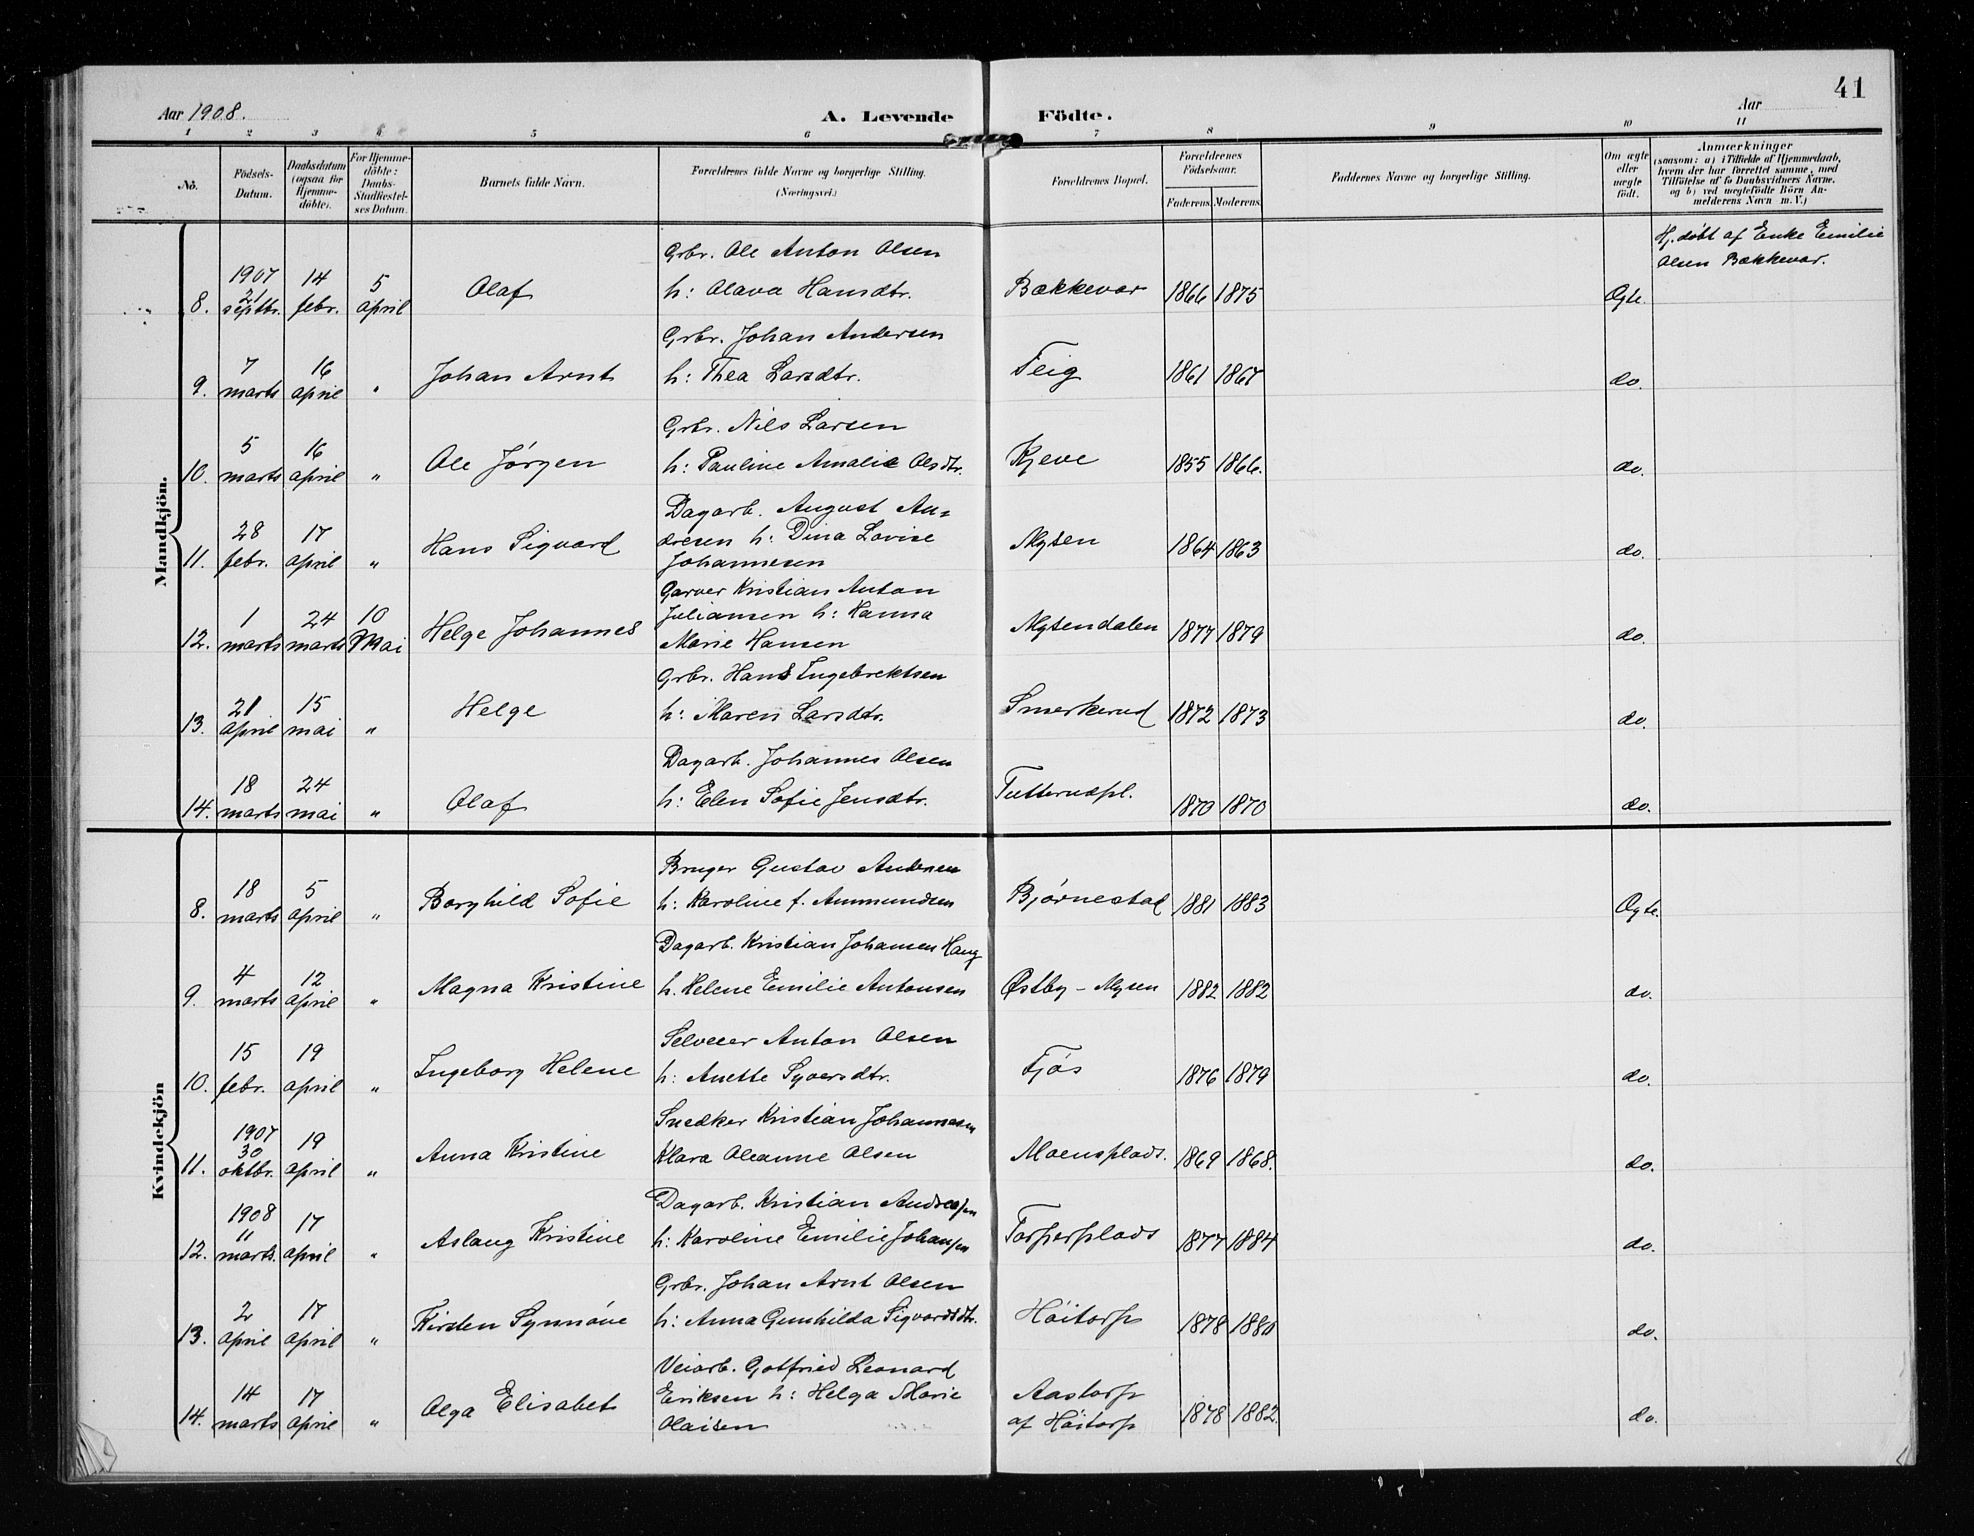 41
Aar 1908.
A. Levende Födte.
Aar
1 2 3 4 5 6 7 8 9 10 11
No.
Födsels-
Datum.
Daabsdatum
(ogsaa for
Hjemme-
döbte).
For Hjemme-
döbte:
Daabs-
Stadfæstel-
ses Datum.
Barnets fulde Navn.
Forældrenes fulde Navne og borgerlige Stilling.
(Næringsvei.)
Forældrenes Bopæl.
Forældrenes
Födselsaar.
Faderens. Moderens.
Faddernes Navne og borgerlige Stilling.
Om ægte
eller
uægte
födt.
Anmærkninger
(saasom: a) i Tilfælde af Hjemmedaab,
hvem der har forrettet samme, med
Tilföielse af to Daabsvidners Navne.
og b) ved uegtefödte Börn An-
melderens Navn m. V.)
Mandkjön.
H. døbt af Enke Emilie
Olsen Bækkevar.
Grbr. Ole Anton Olsen
1907
21 14 5
8. septbr. febr. april Olaf h: Olava Hansdtr. Bækkevar 1866 1875 Ægte.
Grbr. Johan Andersen
7 16
9. marts april " Johan Arnt h: Thea Larsdtr. Teig 1861 1867 do.
Grbr. Nils Larsen
5 16
10. marts april " Ole Jørgen h: Pauline Amalie Olsdtr. Kjeve 1855 1866. do.
Dagarb. August An-
28 17
dresen h: Dina Lovise
11. febr. april " Hans Sigvard Johannesen Mysen 1864 1863 do.
Garver Kristian Anton
1 24 10
Juliansen h: Hanna
12. marts marts Mai Helge Johannes Marie Hansen Mysendalen 1877 1879 do.
Grbr. Hans Ingebrektsen
21 15
13. april mai " Helge h: Maren Larsdtr. Smerkerud 1872 1873 do.
Dagarb. Johannes Olsen
18 24
14. marts mai " Olaf h: Elen Sofie Jensdtr. Tutterudpl. 1870 1870 do.
Kvindekjön
Bruger Gustav Andersen
18 5
8. marts april " Borghild Sofie h: Karoline f. Ammundsen Bjørnestad 1881 1883 Ægte.
Dagarb. Kristian Johansen Haug
4 12
9. marts april " Magna Kristine h. Helene Emilie Antonsen Østby - Mysen 1882 1882 do.
Selveier Anton Olsen
15 19
10. febr. april " Ingeborg Helene h: Anette Syversdtr. Fjøs 1876 1879 do.
Snedker Kristian Johannesen
1907
30 19
11. oktbr. april " Anna Kristine Klara Oleanne Olsen Moensplads. 1869 1868. do.
Dagarb. Kristian Andresen
1908
11 17
12. marts. april " Aslaug Kristine h: Karoline Emilie Johansen Torperplads 1877 1884 do.
Grbr. Johan Arnt Olsen
2 17
13. april april " Kirsten Synnøve h: Anna Gunhilda Sigvardsdtr. Høitorp 1878 1880 do.
Veiarb. Gotfried Leonard
14 17
Eriksen h: Helga Marie Aastorp
14. marts april " Olga Elisabet Olaisen af Høitorp 1878 1882. do.